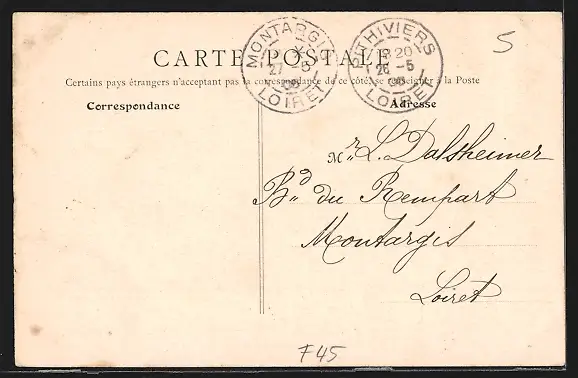 5
MONTARGIS
27 -5
LOIRET
PITHIVIERS
18 20
26 -5
LOIRET
CARTE POSTALE
Certains pays étrangers n'acceptant pas la correspondance de ce côté, se renseigner à la Poste
Correspondance
Adresse
Mr L. Dalsheimer
Bd du Rempart
Montargis
Loiret
F45